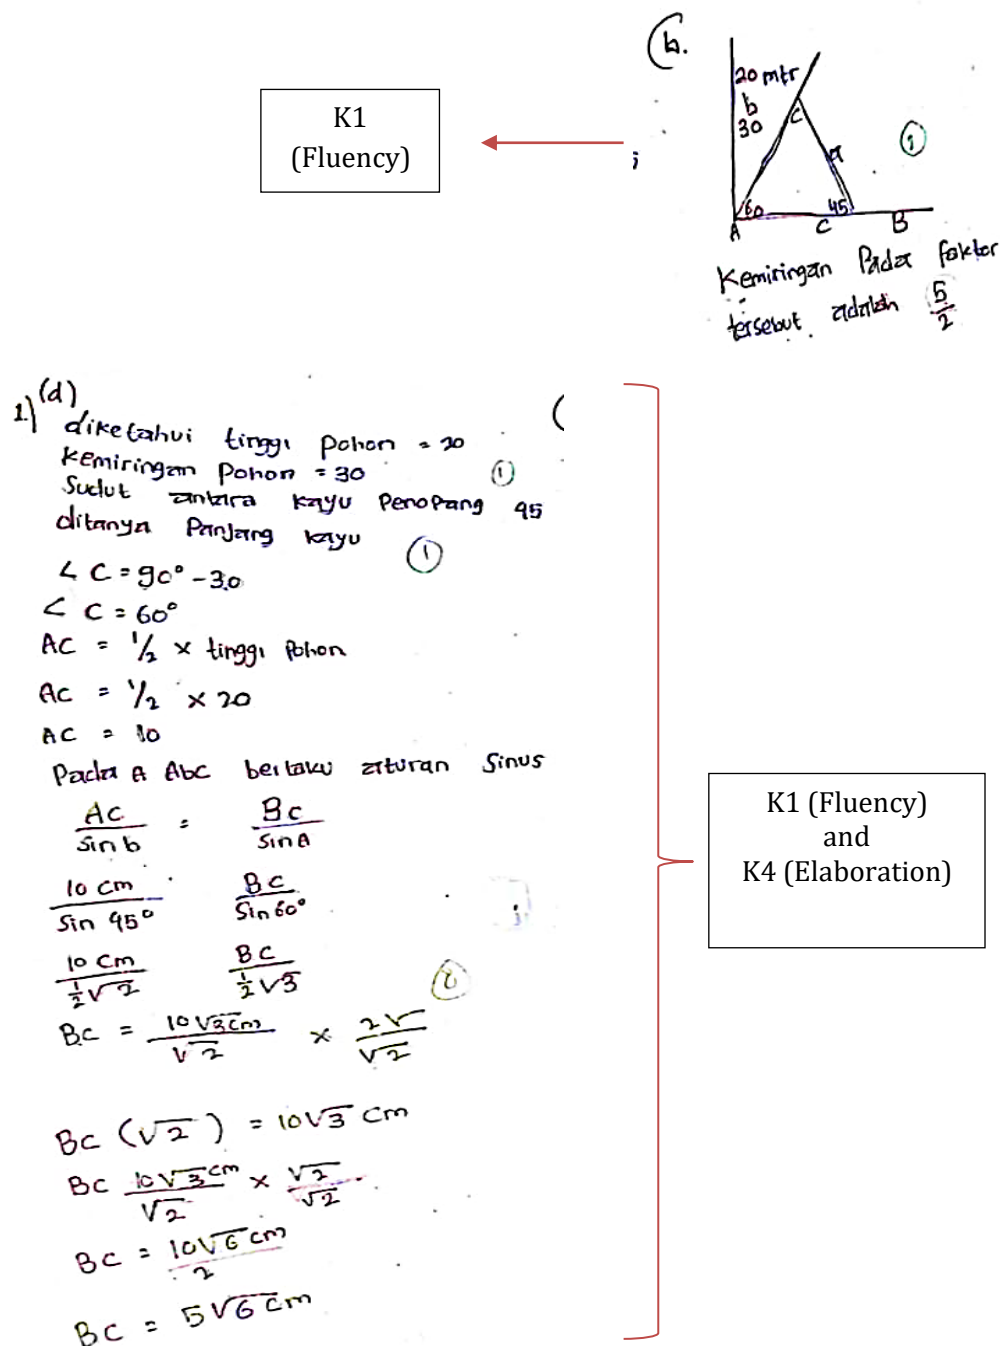 (b.
K1
(Fluency)
20 mtr
b
30
C
a
60
45
A
C
B
Kemiringan Pada faktor
tersebut adalah 5/2
1.) (d)
diketahui tinggi pohon = 20
kemiringan pohon = 30
Sudut antara kayu Penopang 45
ditanya Panjang kayu
∠ C = 90° - 30
∠ C = 60°
AC = 1/2 × tinggi Pohon
AC = 1/2 × 20
AC = 10
Pada A Abc berlaku aturan Sinus
AC/sin b = BC/sin A
10 cm/Sin 45° BC/Sin 60°
10 cm/½√2 BC/½√3
BC = 10√3 cm/√2 × 2√/√2
BC (√2) = 10√3 cm
BC 10√3 cm/√2 × √2/√2
BC = 10√6 cm/2
BC = 5√6 cm
K1 (Fluency)
and
K4 (Elaboration)